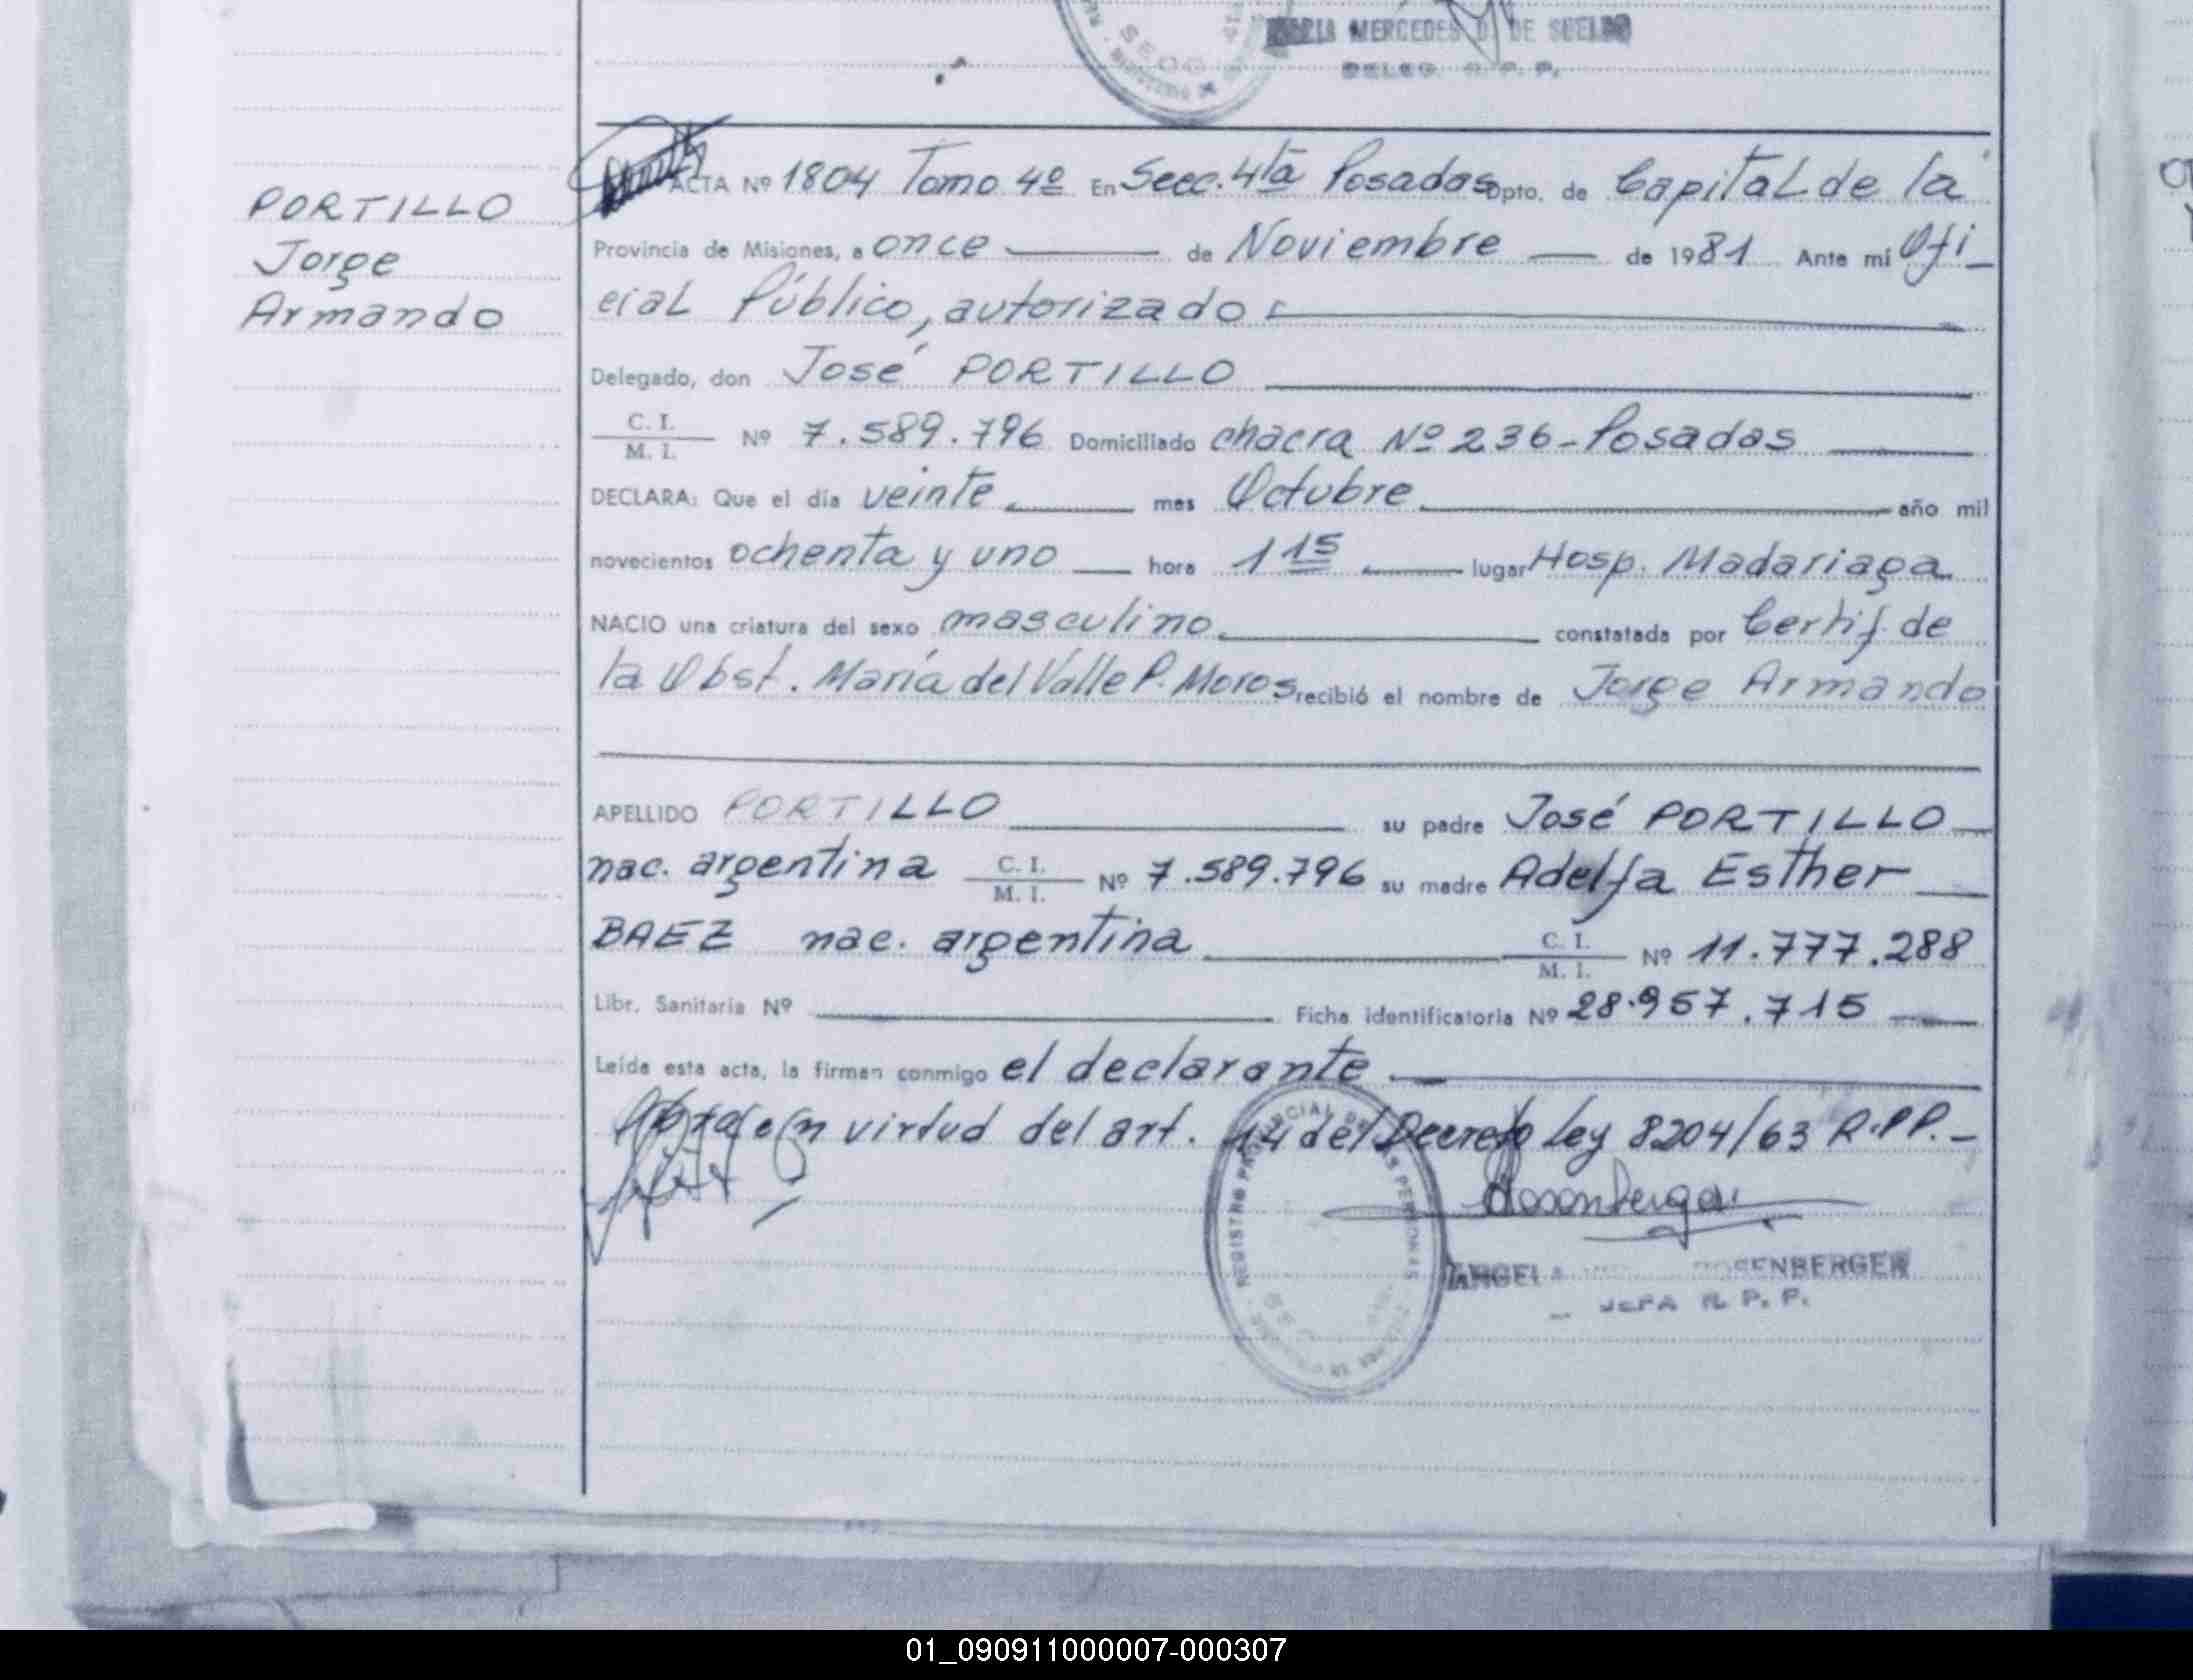 MARIA MERCEDES D. DE SUELDO
DELEG. R. P. P.
PORTILLO
Jorge
Armando
ACTA Nº 1804 Tomo 4º En Secc. 4ta Posadas Dpto. de Capital de la
Provincia de Misiones, a once de Noviembre de 1981 Ante mí Ofi_
cial Público, autorizado
Delegado, don José PORTILLO
C. I.
M. I. Nº 7.589.796 Domiciliado chacra Nº 236-Posadas
DECLARA: Que el día veinte mes Octubre año mil
novecientos ochenta y uno hora 1 15 lugar Hosp. Madariaga
NACIO una criatura del sexo masculino constatada por Certif. de
la Obst. María del Valle P. Moros recibió el nombre de Jorge Armando
APELLIDO PORTILLO su padre José PORTILLO
nac. argentina C. I. M. I. Nº 7.589.796 su madre Adelfa Esther
BAEZ nac. argentina C. I. M. I. Nº 11.777.288
Libr. Sanitaria Nº Ficha identificatoria Nº 28.957.715
Leída esta acta, la firman conmigo el declarante
en virtud del art. 14 del Decreto Ley 8204/63 R.PP.-
REGISTRO PROVINCIAL DE LAS PERSONAS
ANGELA ROSENBERGER
JEFA R. P. P.
01_090911000007-000307